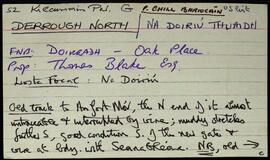 52 Kilcummin Par. G P. CHILL
DERROUGH NORTH NA DOIRIÚ THUAIDH
ENG: DOIREADH – Oak Place
Prop: Thomas Blake Esq.
Liosta Focal: Na Doiriú
Old track to An Fort Mór, the N end of it almost
untraceable & interrupted by wire; muddy stretches
farther S, good condition S. of the new gate &
wire at body. with Seanafhéistín. NB, old →